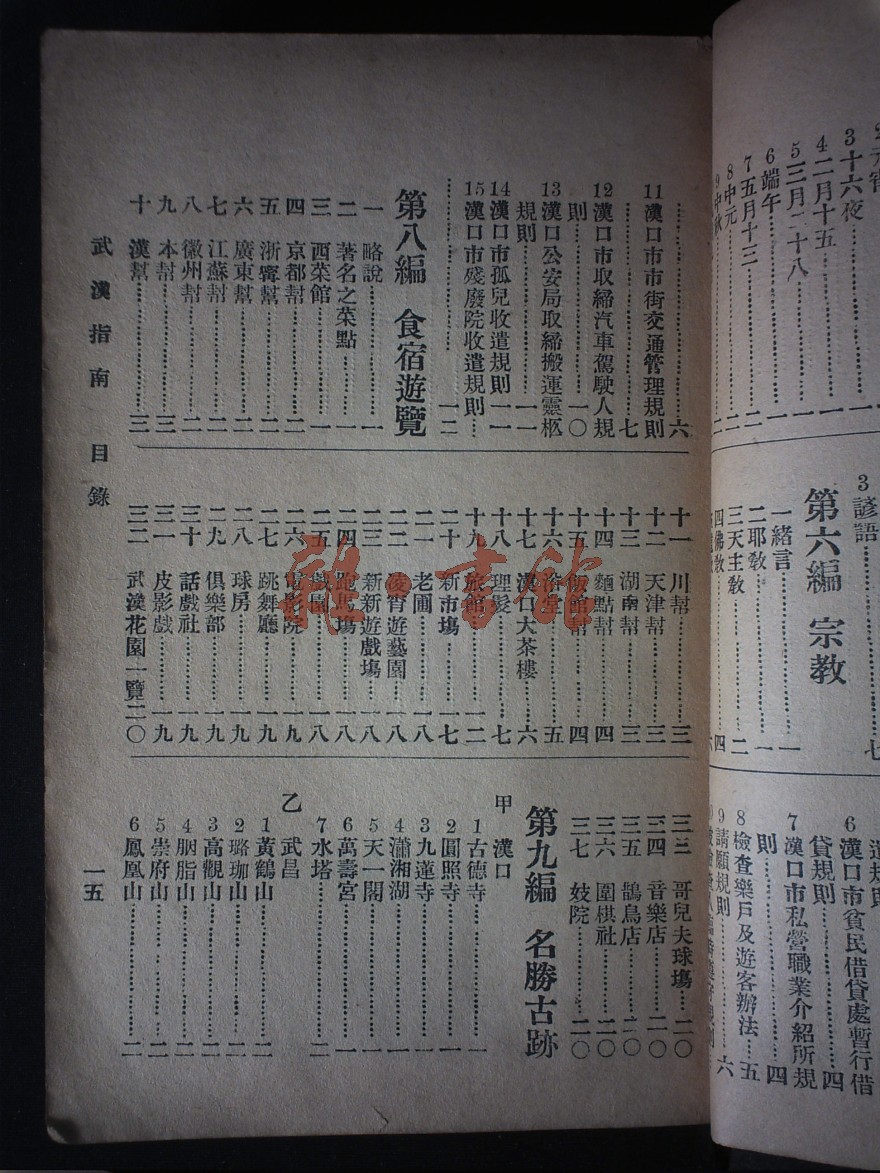 3十六夜……一
4二月十五……一
5三月二十八……一
6端午……一
7五月十三……二
8中元……二
9中秋……二
3諺語……七
第六編 宗教
一緒言……一
二耶教……一
三天主教……二
四佛教……四
6漢口市貧民借貸處暫行借
貸規則……四
7漢口市私營職業介紹所規
則……四
8檢查樂戶及遊客辦法……五
9請願規則……六
……六
11漢口市市街交通管理規則
……七
12漢口市取締汽車駕駛人規
則……一〇
13漢口公安局取締搬運靈柩
規則……一一
14漢口市孤兒收遣規則…一一
15漢口市殘廢院收遣規則…
……一二
第八編 食宿遊覽
一 略說……一
二 著名之菜點……一
三 西菜館……一
四 京都幫……二
五 浙寗幫……二
六 廣東幫……二
七 江蘇幫……二
八 徽州幫……二
九 本幫……三
十 漢幫……三
十一 川幫……三
十二 天津幫……三
十三 湖南幫……三
十四 麵點幫……四
十五 飯館幫……四
十六 浴堂……五
十七 漢口大茶樓……六
十八 理髮……七
十九 旅館……一二
二十 新市塲……一七
二一 老圃……一八
二二 凌宵遊藝園……一八
二三 新新遊戲塲……一八
二四 跑馬塲……一八
二五 戲園……一八
二六 電影院……一九
二七 跳舞廳……一九
二八 球房……一九
二九 俱樂部……一九
三十 話戲社……一九
三一 皮影戲……一九
三二 武漢花園一覽二〇
三三 哥兒夫球塲…二〇
三四 音樂店……二〇
三五 鵲鳥店……二〇
三六 圍棋社……二〇
三七 妓院……二〇
第九編 名勝古跡
甲 漢口
1古德寺……一
2圓照寺……一
3九蓮寺……一
4瀟湘湖……一
5天一閣……一
6萬壽宮……一
7水塔……二
乙 武昌
1黃鶴山……二
2珞珈山……二
3高觀山……二
4胭脂山……二
5崇府山……二
6鳳凰山……二
武漢指南 目錄
一五